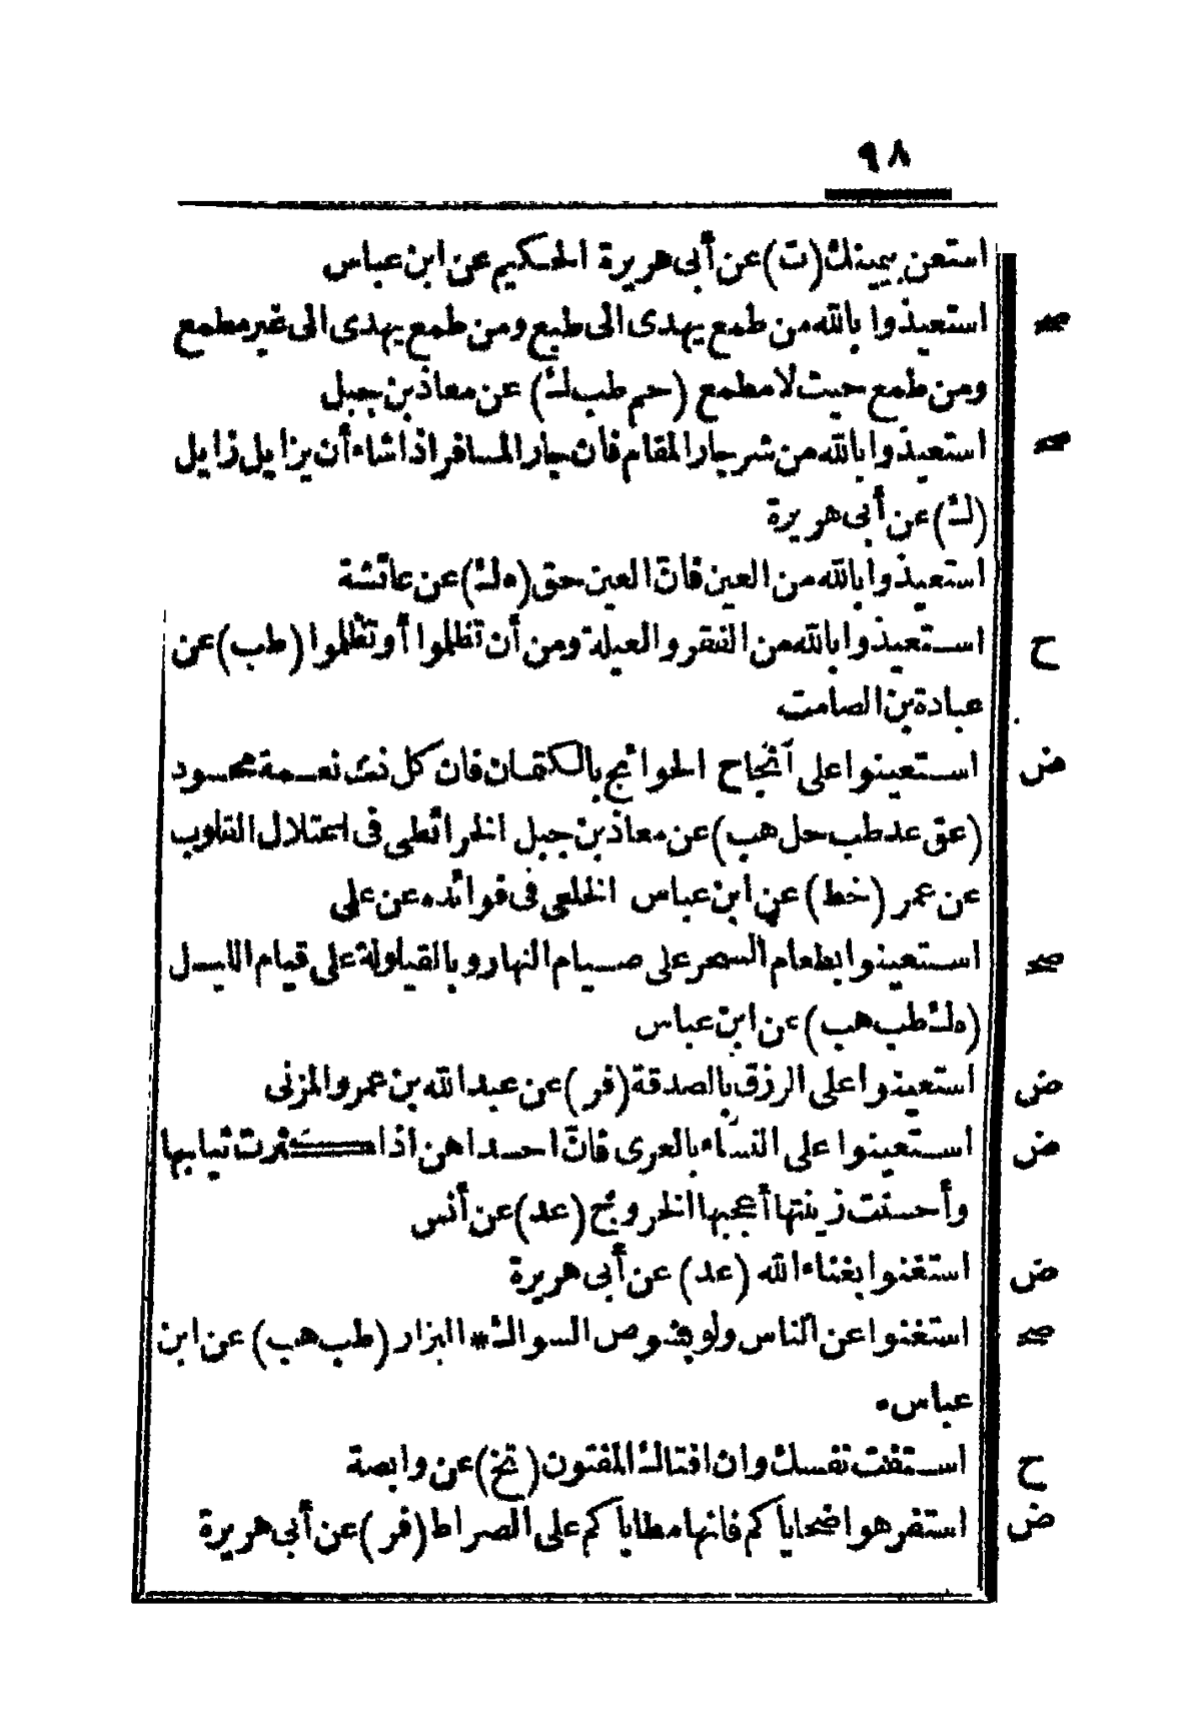 ٩٨
استعن بيمينك (ت) عن أبى هريرة الحكيم عن ابن عباس
صح استعيذوا بالله من طمع يهدى الى طبع ومن طمع يهدى الى غير مطمع
ومن طمع حيث لا مطمع (حم طب ك) عن معاذ بن جبل
صح استعيذوا بالله من شر جار المقام فان جار المسافر اذا شاء أن يزايل زايل
(ك) عن أبى هريرة
استعيذوا بالله من العين فانّ العين حق (ه ك) عن عائشة
ح استعيذوا بالله من الفقر والعيلة ومن أن تظلموا أو تظلموا (طب) عن
عبادة بن الصامت
ض استعينوا على انجاح الحوائج بالكتمان فان كل ذى نعمة محسود
(عق عد طب حل هب) عن معاذ بن جبل الخرائطى فى اعتلال القلوب
عن عمر (خط) عن ابن عباس الخلعى فى فوائده عن على
صح استعينوا بطعام السحر على صيام النهار وبالقيلولة على قيام الليل
(ه ك طب هب) عن ابن عباس
ض استعينوا على الرزق بالصدقة (فر) عن عبد الله بن عمرو المزنى
ض استعينوا على النساء بالعرى فانّ احداهن اذا كثرت ثيابها
وأحسنت زينتها أعجبها الخروج (عد) عن أنس
ض استغنوا بغناء الله (عد) عن أبى هريرة
صح استغنوا عن الناس ولو بشوص السواك * البزار (طب هب) عن ابن
عباس
ح استفت نفسك وان افتاك المفتون (تخ) عن وابصة
ض استفرهوا ضحاياكم فانها مطاياكم على الصراط (فر) عن أبى هريرة